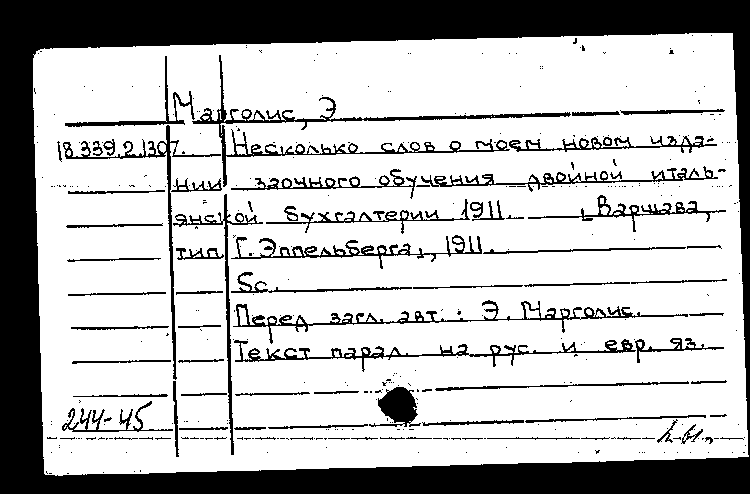 Марголис, Э
18.339.2.1307. Несколько слов о моем новом изда-
нии заочного обучения двойной италь-
янской бухгалтерии 1911. [Варшава,
тип. Г. Эппельберга], 1911.
5с.
Перед загл. авт.: Э. Марголис.
Текст парал. на рус. и евр. яз.
244-45